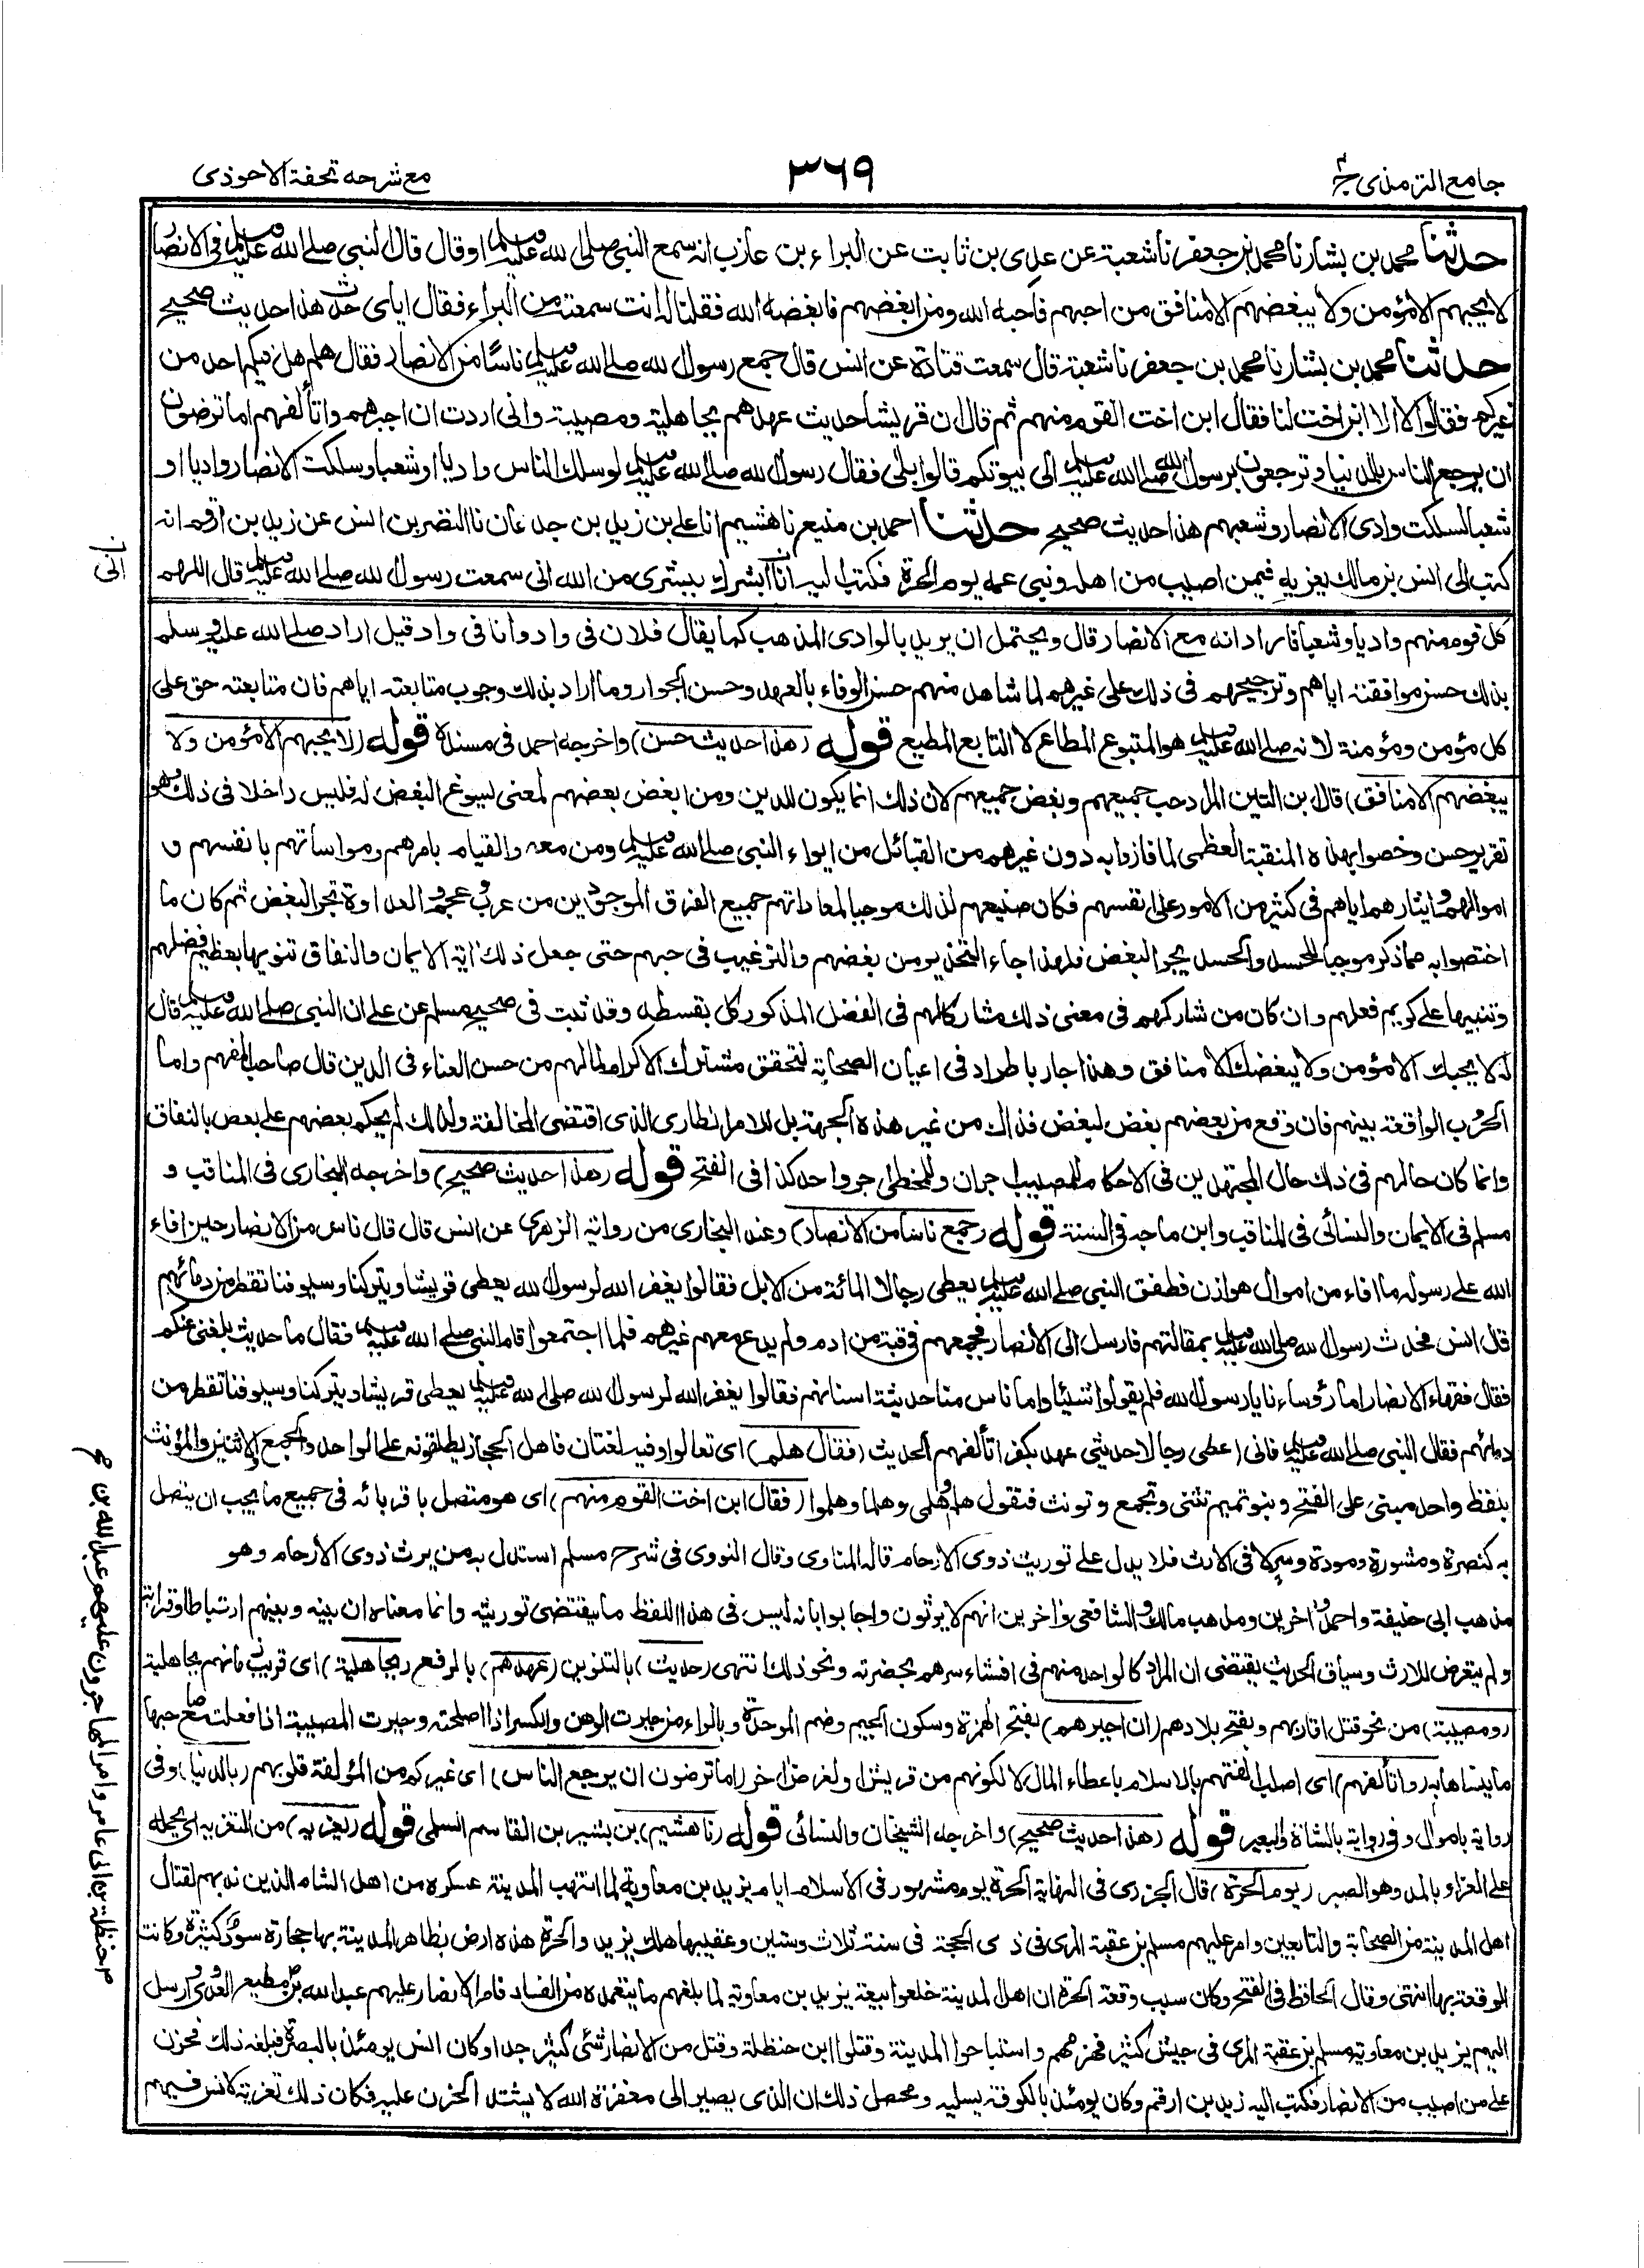 جامع الترمذي ج۴
۳۶۹
مع شرحه تحفة الاحوذي
حدثنا محمد بن بشار نا محمد بن جعفر نا شعبة عن عدي بن ثابت عن البراء بن عازب انه سمع النبي صلى الله عليه وسلم او قال قال النبي صلے الله عليه وسلم في الانصار
لا يحبهم الا مؤمن ولا يبغضهم الا منافق من احبهم فاحبه الله ومن ابغضهم فابغضه الله فقلنا له انت سمعته من البراء فقال اياي حدث هذا حديث صحيح
حدثنا محمد بن بشار نا محمد بن جعفر نا شعبة قال سمعت قتادة عن انس قال جمع رسول الله صلے الله عليه وسلم ناسًا من الانصار فقال هلم هل فيكم احد من
غيركم فقالوا لا الا ابن اخت لنا فقال ابن اخت القوم منهم ثم قال ان قريشا حديث عهدهم بجاهلية ومصيبة واني اردت ان اجبرهم واتألفهم اما ترضون
ان يرجع الناس بالدنيا وترجعون برسول الله صلے الله عليه وسلم الى بيوتكم قالوا بلى فقال رسول الله صلے الله عليه وسلم لو سلك الناس واديا او شعبا وسلكت الانصار واديا او
شعبا لسلكت وادي الانصار وشعبهم هذا حديث صحيح حدثنا احمد بن منيع نا هشيم انا علي بن زيد بن جدعان نا النضر بن انس عن زيد بن ارقم انه
كتب الى انس بن مالك يعزيه فيمن اصيب من اهله وبني عمه يوم الحرة فكتب اليه انا ابشرك ببشرى من الله اني سمعت رسول الله صلے الله عليه وسلم قال اللهم
كل قوم منهم واديا وشعبا فاراد انه مع الانصار قال ويحتمل ان يريد بالوادي المذهب كما يقال فلان في واد وانا في واد قيل اراد صلے الله عليه وسلم
بذلك حسن موافقته اياهم وترجيحهم في ذلك على غيرهم لما شاهد منهم حسن الوفاء بالعهد وحسن الجوار وما اراد بذلك وجوب متابعته اياهم فان متابعته حق على
كل مؤمن ومؤمنة لانه صلے الله عليه وسلم هو المتبوع المطاع لا التابع المطيع قوله (هذا حديث حسن) واخرجه احمد في مسنده قوله (لا يحبهم الا مؤمن ولا
يبغضهم الا منافق) قال ابن التين المراد حب جميعهم وبغض جميعهم لان ذلك انما يكون للدين ومن ابغض بعضهم لمعنى يسوغ البغض له فليس داخلا في ذلك وهو
تقرير حسن وخصوا بهذه المنقبة العظمى لما فازوا به دون غيرهم من القبائل من ايواء النبي صلے الله عليه وسلم ومن معه والقيام بامرهم ومواساتهم بانفسهم و
اموالهم وايثارهم اياهم في كثير من الامور على انفسهم فكان صنيعهم لذلك موجبا لمعاداتهم جميع الفرق الموجودين من عرب وعجم والعداوة تجر البغض ثم كان ما
اختصوا به مما ذكر موجبا للحسد والحسد يجر البغض فلهذا جاء التحذير من بغضهم والترغيب في حبهم حتى جعل ذلك اية الايمان والنفاق تنويها بعظيم فضلهم
وتنبيها على كريم فعلهم وان كان من شاركهم في معنى ذلك مشاركا لهم في الفضل المذكور كل بقسطه وقد ثبت في صحيح مسلم عن علي ان النبي صلے الله عليه وسلم قال
له لا يحبك الا مؤمن ولا يبغضك الا منافق وهذا جار باطراد في اعيان الصحابة لتحقق مشترك الاكرام لما لهم من حسن العناء في الدين قال صاحب المفهم واما
الحروب الواقعة بينهم فان وقع من بعضهم بغض لبعض فذاك من غير هذه الجهة بل للامر الطاري الذي اقتضى المخالفة ولذلك لم يحكم بعضهم على بعض بالنفاق
وانما كان حالهم في ذلك حال المجتهدين في الاحكام للمصيب اجران وللمخطئ اجر واحد كذا في الفتح قوله (هذا حديث صحيح) واخرجه البخاري في المناقب و
مسلم في الايمان والنسائي في المناقب وابن ماجه في السنة قوله (جمع ناسا من الانصار) وعند البخاري من رواية الزهري عن انس قال قال ناس من الانصار حين افاء
الله على رسوله ما افاء من اموال هوازن فطفق النبي صلے الله عليه وسلم يعطي رجالا المائة من الابل فقالوا يغفر الله لرسول الله يعطي قريشا ويتركنا وسيوفنا تقطر من دمائهم
قال انس فحدث رسول الله صلى الله عليه وسلم بمقالتهم فارسل الى الانصار فجمعهم في قبة من ادم ولم يدع معهم غيرهم فلما اجتمعوا قام النبي صلے الله عليه وسلم فقال ما حديث بلغني عنكم
فقال فقهاء الانصار اما رؤساءنا يا رسول الله فلم يقولوا شيئا واما ناس منا حديثة اسنانهم فقالوا يغفر الله لرسول الله صلى الله عليه وسلم يعطي قريشا ويتركنا وسيوفنا تقطر من
دمائهم فقال النبي صلے الله عليه وسلم فاني اعطي رجالا حديثي عهد بكفر اتألفهم الحديث (فقال هلم) اي تعالوا وفيه لغتان فاهل الحجاز يطلقونه على الواحد والجمع والاثنين والمؤنث
بلفظ واحد مبني على الفتح وبنو تميم تثنى وتجمع وتونث فتقول هلم وهلمي وهلما وهلموا (فقال ابن اخت القوم منهم) اي هو متصل باقربائه في جميع ما يجب ان يتصل
به كنصرة ومشورة ومودة وسر لا في الارث فلا يدل على توريث ذوي الارحام قاله المناوي وقال النووي في شرح مسلم استدل به من يرث ذوي الارحام وهو
مذهب ابي حنيفة واحمد واخرين ومذهب مالك والشافعي واخرين انهم لا يرثون واجابوا بانه ليس في هذا اللفظ ما يقتضى توريثه وانما معناه ان بينه وبينهم ارتباطا وقرابة
ولم يتعرض للارث وسياق الحديث يقتضي ان المراد كالواحد منهم في افشاء سرهم بحضرته ونحو ذلك انتهى (حديث) بالتنوين (عهدهم) بالرفع (بجاهلية) اي قريب زمانهم بجاهلية
(ومصيبة) من نحو قتل اقاربهم وبفتح بلادهم (ان اجبرهم) بفتح الهمزة وسكون الجيم وضم الموحدة وبالراء من جبرت الوهن والكسر اذا اصلحته وجبرت المصيبة اذا فعلت مع صاحبها
ما ينساها به (واتألفهم) اي اطلب الفتهم بالاسلام باعطاء المال لا لكونهم من قريش او لغرض اخر (اما ترضون ان يرجع الناس) اي غيركم من المؤلفة قلوبهم (بالدنيا) وفي
رواية باموال وفي رواية بالشاة والبعير قوله (هذا حديث صحيح) واخرجه الشيخان والنسائي قوله (نا هشيم) بن بشير بن القاسم السلمي قوله (يعزيه) من التعزية اي يحمله
على العزاء بالمد وهو الصبر (يوم الحرة) قال الجزري في النهاية الحرة يوم مشهور في الاسلام ايام يزيد بن معاوية لما انتهب المدينة عسكره من اهل الشام الذين ندبهم لقتال
اهل المدينة من الصحابة والتابعين وامر عليهم مسلم بن عقبة المري في ذي الحجة في سنة ثلاث وستين وعقيبها هلك يزيد والحرة هذه ارض بظاهر المدينة بها حجارة سود كثيرة وكانت
الوقعة بها انتهى وقال الحافظ في الفتح وكان سبب وقعة الحرة ان اهل المدينة خلعوا بيعة يزيد بن معاوية لما بلغهم ما يتعمده من الفساد فامر الانصار عليهم عبد الله بن مطيع العدوي وارسل
اليهم يزيد بن معاوية مسلم بن عقبة المري في جيش كثير فهزمهم واستباحوا المدينة وقتلوا ابن حنظلة وقتل من الانصار شئ كثير جدا وكان انس يومئذ بالبصرة فبلغه ذلك فحزن
على من اصيب من الانصار فكتب اليه زيد بن ارقم وكان يومئذ بالكوفة يسليه ومحصل ذلك ان الذي يصير الى مغفرة الله لا يشتد الحزن عليه فكان ذلك تعزية لانس فيهم
حنظلة بن ابي عامر وامر المهاجرون عليهم عبد الله بن